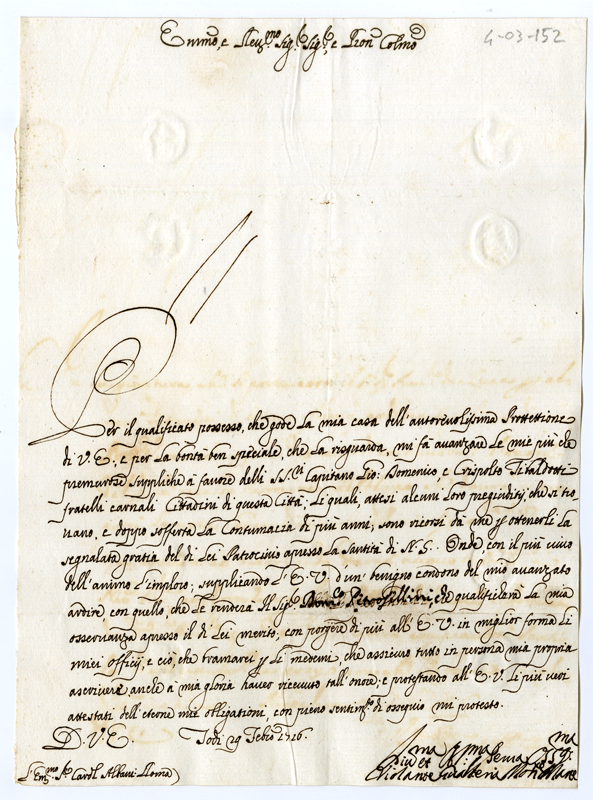 Emmo, e Revmo Sigr Sigr, e Pron Colmo
4-03-152
Per il qualificato possesso, che gode La mia casa dell'autorevolissima Prottettione
di V.E., e per La bontà ben speciale, che La risguarda, mi fà avanzare Le mie più che
premurose suppliche à favore delli SS.ri Capitano Gio: Domenico, e Crispolto
fratelli carnali Cittadini di questa Città; Le quali, attesi alcuni Loro pregiuditij, che si tro
uano, e doppo sofferta La Contumacia di più anni; sono ricorsi dà me p ottenerli La
segnalata gratia del di Lei Patrocinio apresso La Santità di N.S.. Onde con il più viuo
dell'animo L'imploro; supplicando L'E.V. d'un benigno condono del mio auanzato
ardire, con quello, che Le renderà Il Sigr che qualificherà La mia
osseruanza apresso il di Lei merito, con porgere di più all'E.V. in miglior forma Li
miei officij, e ciò, che bramarei p Li medemi, che assicuro tutto in persona mia propria
ascriuerè anche à mia gloria hauer riceuuto tall'onore; e protestando all'E.V. Li più veri
attestati dell'eterne mie obligationi, con pieno sentimto di ossequio mi protesto.
D. V. E. Todi 29 Febro 1716.
ma ma ma
Diu et Serua
Violante
S. Emmo Sr Cardl Albani Roma